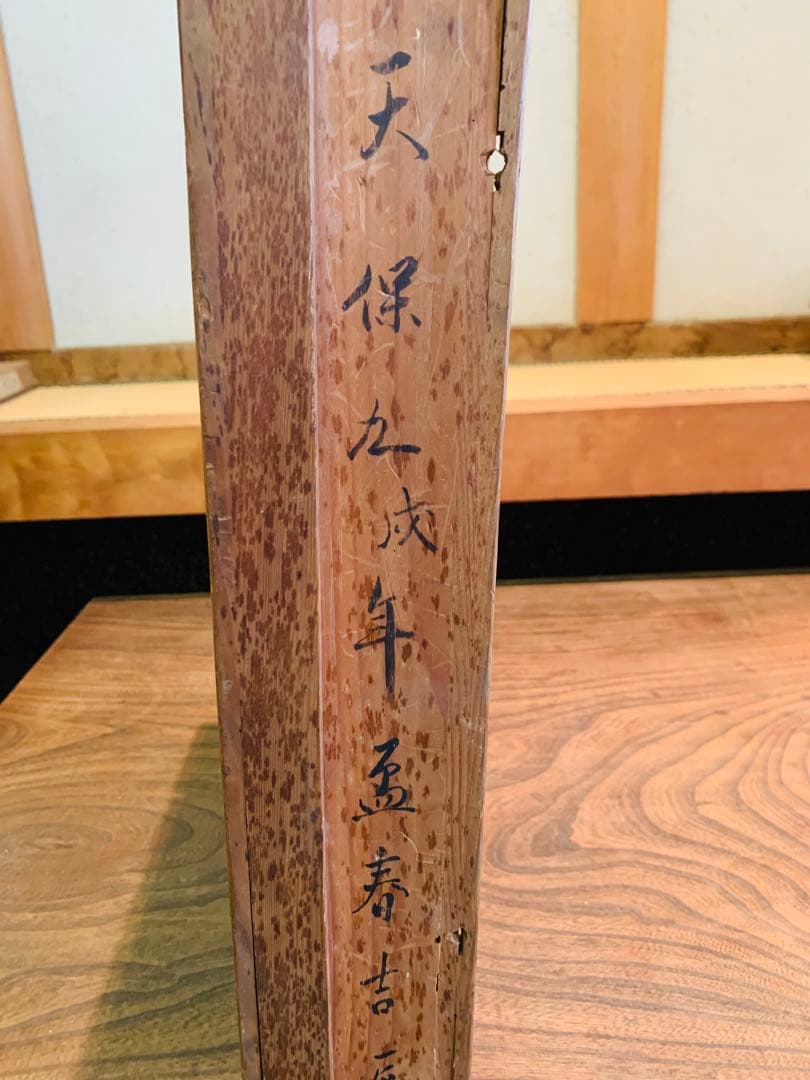 天保九戌年孟春吉